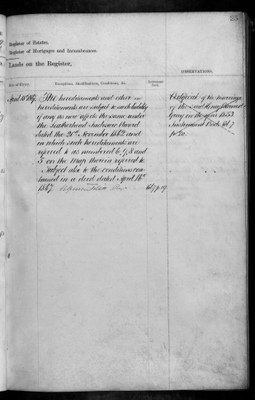 Register of Estates.
Register of Mortgages and Incumbrances.
Lands on the Register,
OBSERVATIONS.
Date of Entry.
Exceptions, Qualifications, Conditions, &c.
April 18 1867
The hereditaments and other
hereditaments are subject to such liability
if any as now affects the same under
the Leatherhead Inclosure Award
dated the 20th November 1862 and
in which such hereditaments are
referred to as numbered 6, 7, 8 and
5 on the map therein referred to
Subject also to the conditions con-
tained in a deed dated April 16th
1867
167 p 19
Certificate of the marriage
of the
Gray in the year 1853
Instrument Book 167
p 20.